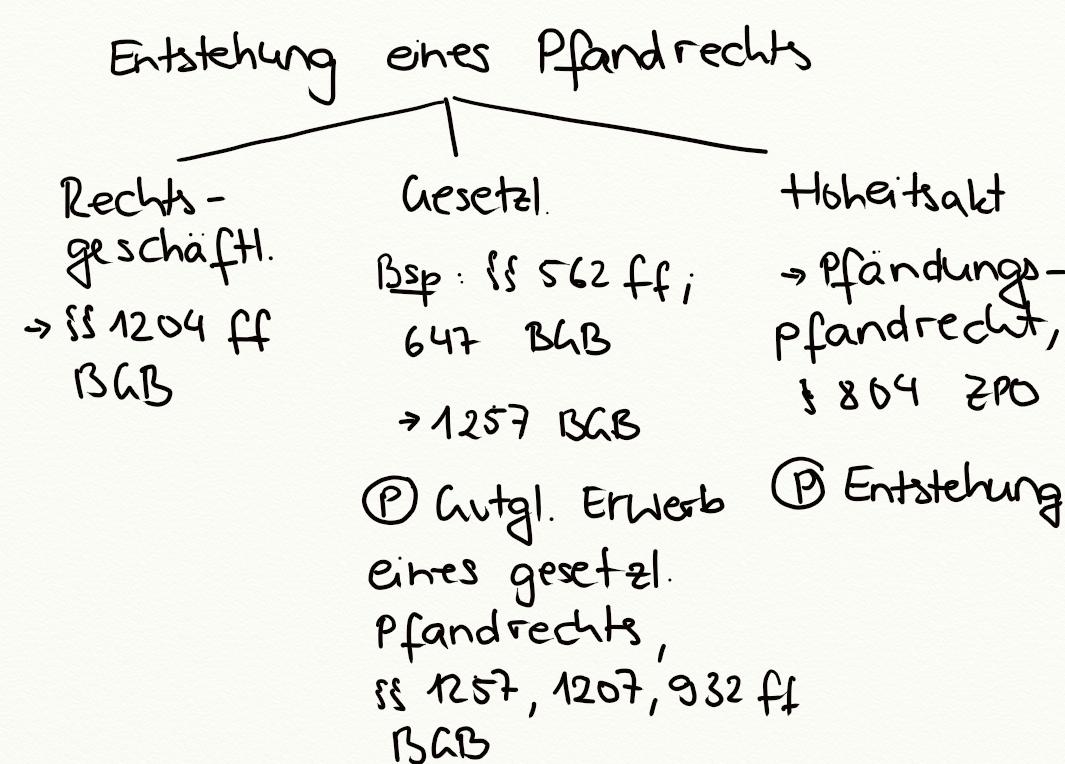 Entstehung eines Pfandrechts
Rechts-
geschäftl.
→ §§ 1204 ff
BGB
Gesetzl.
Bsp: §§ 562 ff;
647 BGB
→ 1257 BGB
Ⓟ Gutgl. Erwerb
eines gesetzl.
Pfandrechts,
§§ 1257, 1207, 932 ff
BGB
Hoheitsakt
→ Pfändungs-
pfandrecht,
§ 804 ZPO
Ⓟ Entstehung